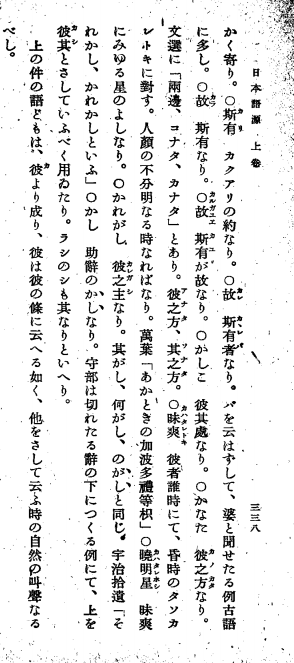 日本語源 上卷
三三八
かく寄り。〇斯有 カクアリの約なり。〇故 斯有者なり。バを云はずして、婆と聞せたる例古語
カリ
カレ カヽレバ
に多し。〇故 斯有なり。〇故 斯有が故なり。〇かしこ 彼其處なり。〇かなた 彼之方なり。
カルガユエ
カノカタ
文選に「兩邊、コナタ、カナタ」とあり。彼之方、其之方。〇昧爽 彼者誰時にて、昏時のタソカ
アナタ ソナタ
カハタレトキ
レトキに對す。人顏の不分明なる時なればなり。萬葉「あかときの加波多禮等枳」〇曉明星 昧爽
カハタレホシ
にみゆる星のよしなり。〇かれがし 彼之主なり。其がし、何がし、のがしと同じ。宇治拾遺「そ
カレガシ
れかし、かれかしといふ」〇かし 助辭のかしなり。守部は切れたる辭の下につくる例にて、上を
彼其とさしていふべく用ゐたり。ラシのシも其なりといへり。
カシ
上の件の語どもは、彼より成り、彼は彼の條に云へる如く、他をさして云ふ時の自然の叫聲なる
カ
べし。